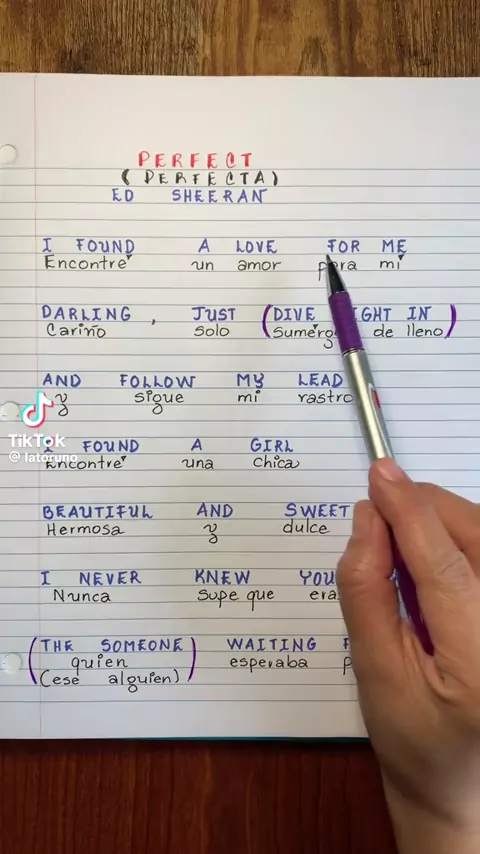 PERFECT
(PERFECTA)
ED SHEERAN
I FOUND A LOVE FOR ME
Encontré un amor para mí
DARLING, JUST (DIVE RIGHT IN)
Cariño solo de lleno
AND FOLLOW MY LEAD
y sigue mi rastro
I FOUND A GIRL
Encontré una chica
BEAUTIFUL AND SWEET
Hermosa y dulce
I NEVER KNEW
Nunca supe que
(THE SOMEONE) WAITING
quien esperaba
(ese alguien)
TikTok
@latoruno